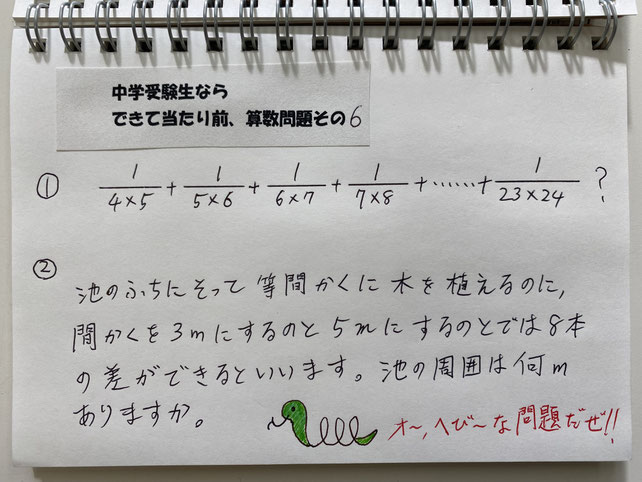 中学受験生なら
できて当たり前、算数問題その6
① 1/4×5 + 1/5×6 + 1/6×7 + 1/7×8 + ‥‥‥ + 1/23×24 ?
② 池のふちにそって等間かくに木を植えるのに,
間かくを3mにするのと5mにするのとでは8本
の差ができるといいます。池の周囲は何m
ありますか。
オ〜,へび〜な問題だぜ!!